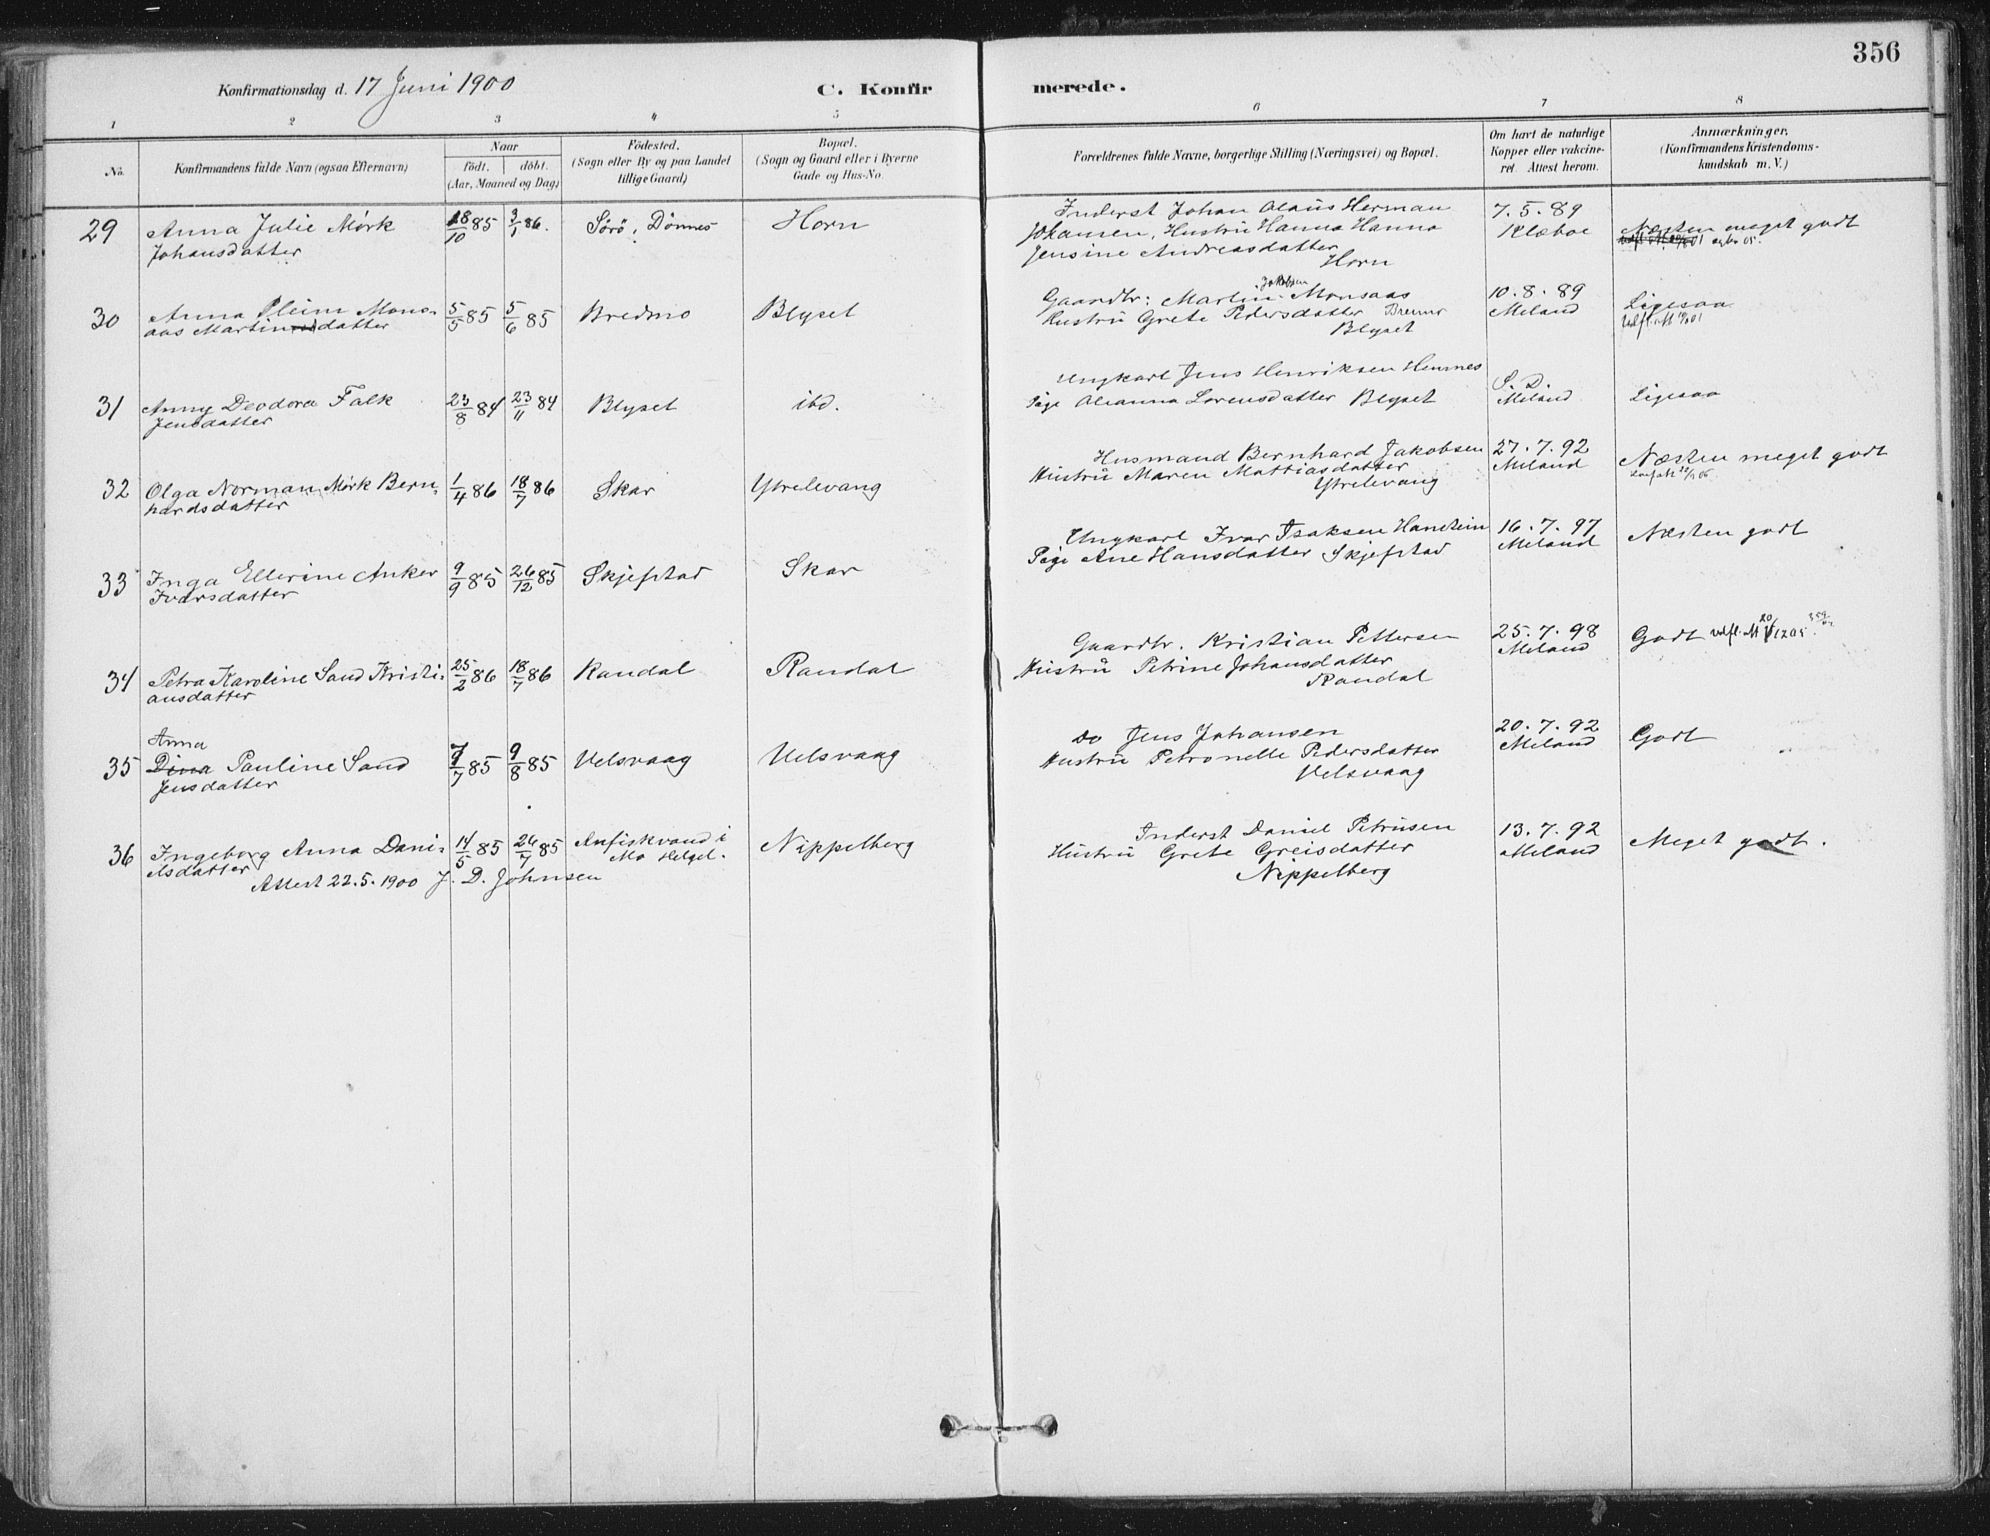 356
Konfirmationsdag d. 17 Juni 1900 C. Konfirmerede.
1 2 3 4 5 6 7 8
No. Konfirmandens fulde Navn (ogsaa Efternavn)
Naar
födt. döbt.
(Aar, Maaned og Dag)
Födested.
(Sogn eller By og paa Landet
tillige Gaard)
Bopæl.
(Sogn og Gaard eller i Byerne
Gade og Hus-No.
Forældrenes fulde Navne, borgerlige Stilling (Næringsvei) og Bopæl.
Om havt de naturlige
Kopper eller vakcine-
ret. Attest herom.
Anmærkninger.
(Konfirmandens Kristendoms-
kundskab m. V.)
29 Anna Julie Mörk
Johansdatter
18/10 85 3/1 86. Sörö, Dönnes Horn
Inderst Johan Olaus Herman
Johansen, Hustrü Hanna Hanna
Jensine Andreasdatter
Horn
7.5.89
Klæboe
Næsten meget godt
30 Anna Pleim Mons-
aas Martinusdatter
5/5 85 5/6 85 Bredmo Blyset
Gaardbr: Martin Jakobsen Monsaas
Hustrü Grete Pedersdatter
Blyset
10.8.89
Meland
Ligesaa
31 Anny Deodora Falk
Jensdatter
23/8 84 23/11 84 Blyset ibd.
Ungkarl Jens Henriksen Hemnes
Pige Oleanna Lorensdatter Blyset
S. D.
Meland
Ligesaa
32 Olga Norman Mörk Bern-
hardsdatter
1/4 86 18/7 86 Skar Ytrelevang
Husmand Bernhard Jakobsen
Hustrü Maren Mattiasdatter
Ytrelevang
27.7.92
Meland
Næsten meget godt
33 Inga Ellerine Anker
Ivarsdatter
9/9 85 26/12 85 Skjefstad Skar
Ungkarl Ivar Isaksen
Pige Ane Hansdatter Skjefstad
16.7.97
Meland
Næsten godt
34 Petra Karoline Sand Kristi-
ansdatter
25/2 86 18/7 86 Randal Randal
Gaardbr. Kristian Pettersen
Hustrü Petrine Johansdatter
Randal
25.7.98
Meland
Godt
35 Anna
Dina Pauline Sand
Jensdatter
7/7 85 9/8 85 Uelsvaag Uelsvaag
Do Jens Johansen
Hustrü Petronelle Pedersdatter
Uelsvaag
20.7.92
Meland
Godt
36 Ingeborg Anna Dani-
elsdatter
Attest 22.5.1900 J. D. Johnsen
14/5 85 26/7 85 Anfiskvand i
Mo Helgel.
Nippelberg
Inderst Daniel Petrüsen
Hüstrü Grete Greisdatter
Nippelberg
13.7.92
Meland
Meget godt.